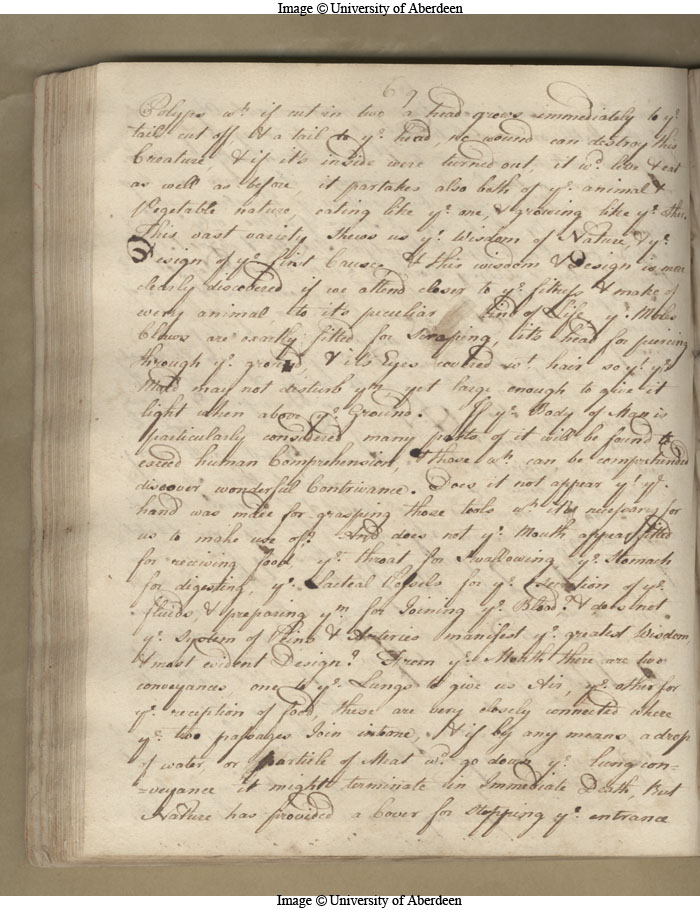 Image © University of Aberdeen
67
Polypes wh. if cut in two a head grows immediately to ye.
tail cut off, & a tail to ye. head, no wound can destroy this
Creature & if it's inside were turned out, it wd. live & eat
as well as before, it partakes also both of ye. animal &
Vegetable nature, eating like ye. one, & growing like ye. other.
This vast variety shews us ye. Wisdom of Nature, & ye.
Design of ye. first Cause, & this wisdom & Design is more
clearly discovered if we attend closer to ye. fitness & make of
every animal to its peculiar kind of Life ye. Moles
Claws are exactly fitted for scraping, its head for piercing
through ye. ground, & its Eyes covered wt. hair so yt. ye.
Mold may not disturb ym. yet large enough to give it
light when above ye. Ground. If ye. Body of Man is
particularly considered many parts of it will be found to
exceed human Comprehension, & those wh. can be comprehended
discover wonderful Contrivance. Does it not appear yt. ye.
hand was made for grasping those tools wh. it is necessary for
us to make use of? And does not ye. Mouth appear fitted
for reciving food ye. throat for Swallowing ye. Stomach
for digesting, ye. Lacteal Vessels for ye. Secretion of ye.
fluids, & preparing ym. for Joining ye. Blood? & does not
ye. System of Veins & Arteries manifest ye. greatest Wisdom,
& most evident Design? From ye. Mouth there are two
conveyances, one to ye. Lungs to give us Air, ye. other for
ye. reception of food, these are very closely connected where
ye. two passages Join in one, & if by any means a drop
of water, or particle of Meat wd. go down ye. lung con=
=veyance it might terminate in Immediate Death, But
Nature has provided a Cover for stopping ye. entrance
Image © University of Aberdeen